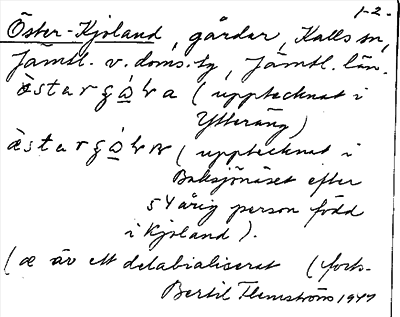 1-2.
Öster-Kjoland, gårder, Kalls sn,
Jämtl. v. doms. tg, Jämtl. län.
(upptecknat i
Ytteräng)
(upptecknat i
Baksjönäset efter
54 årig person född
i Kjoland).
(æ är ett delabialiserat (forts.
Bertil Flemström 1947